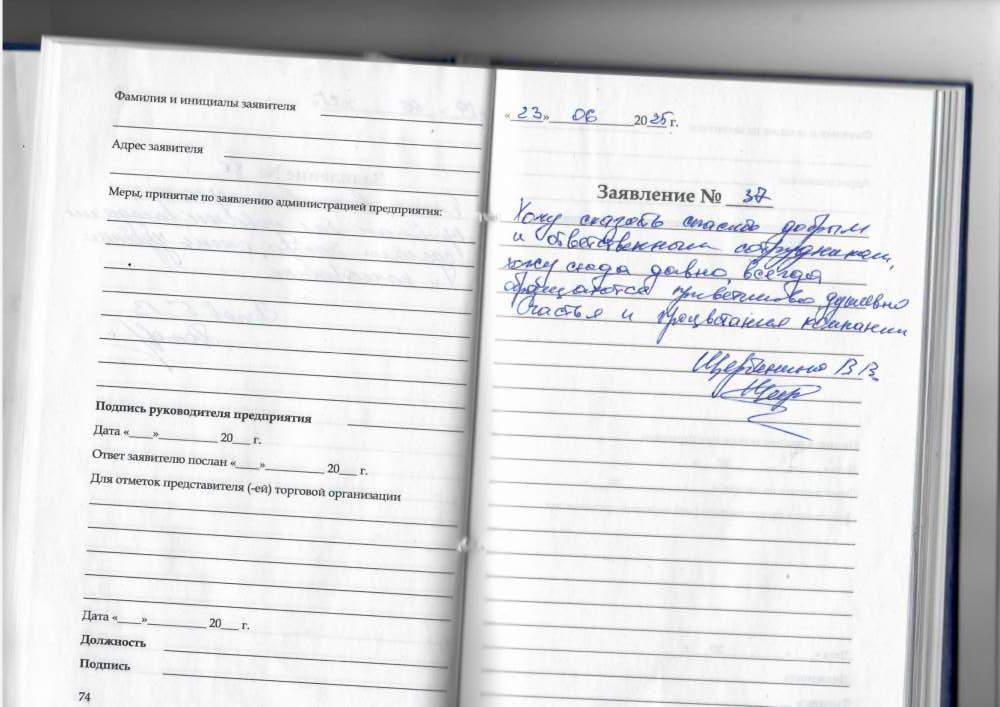 Фамилия и инициалы заявителя
Адрес заявителя
Меры, принятые по заявлению администрацией предприятия:
Подпись руководителя предприятия
Дата «____»__________ 20___ г.
Ответ заявителю послан «____»__________ 20___ г.
Для отметок представителя (-ей) торговой организации
Дата «____»__________ 20___ г.
Должность
Подпись
74
«23» 06 2025 г.
Заявление № 37
Хочу сказать спасибо добрым
и ответственным сотрудникам,
хожу сюда давно, всегда
обращаются приветливо, душевно
Счастья и процветания компании
Щербинина В В.